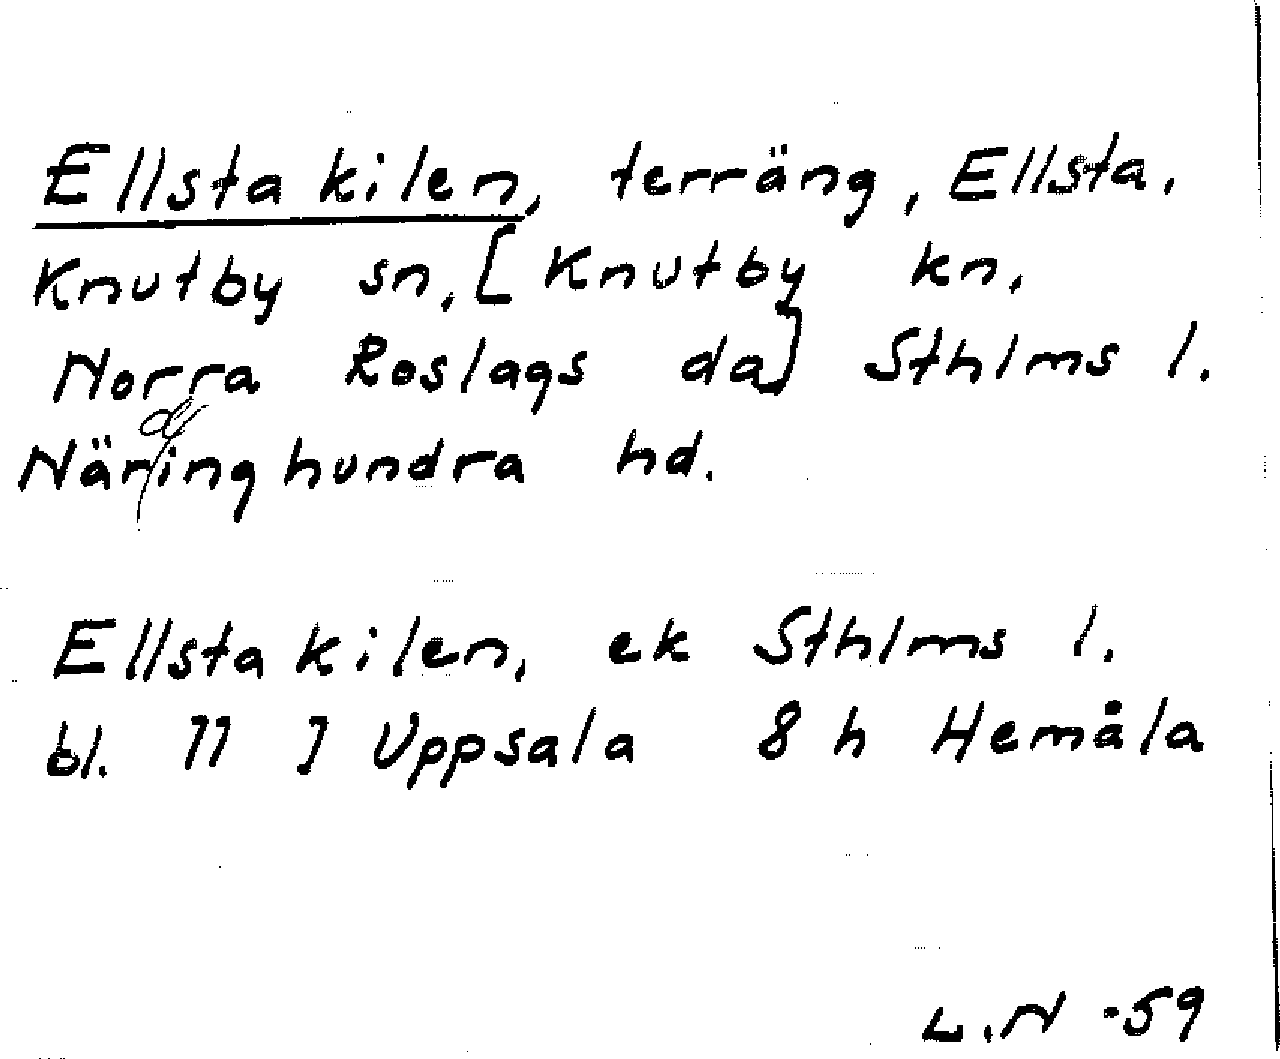 Ellstakilen, terräng, Ellsta.
Knutby sn, [Knutby kn.
Norra Roslags da] Sthlms l.
Närdinghundra hd.
Ellstakilen, ek Sthlms l.
bl. 11 J Uppsala 8 h Hemåla
L.N -59